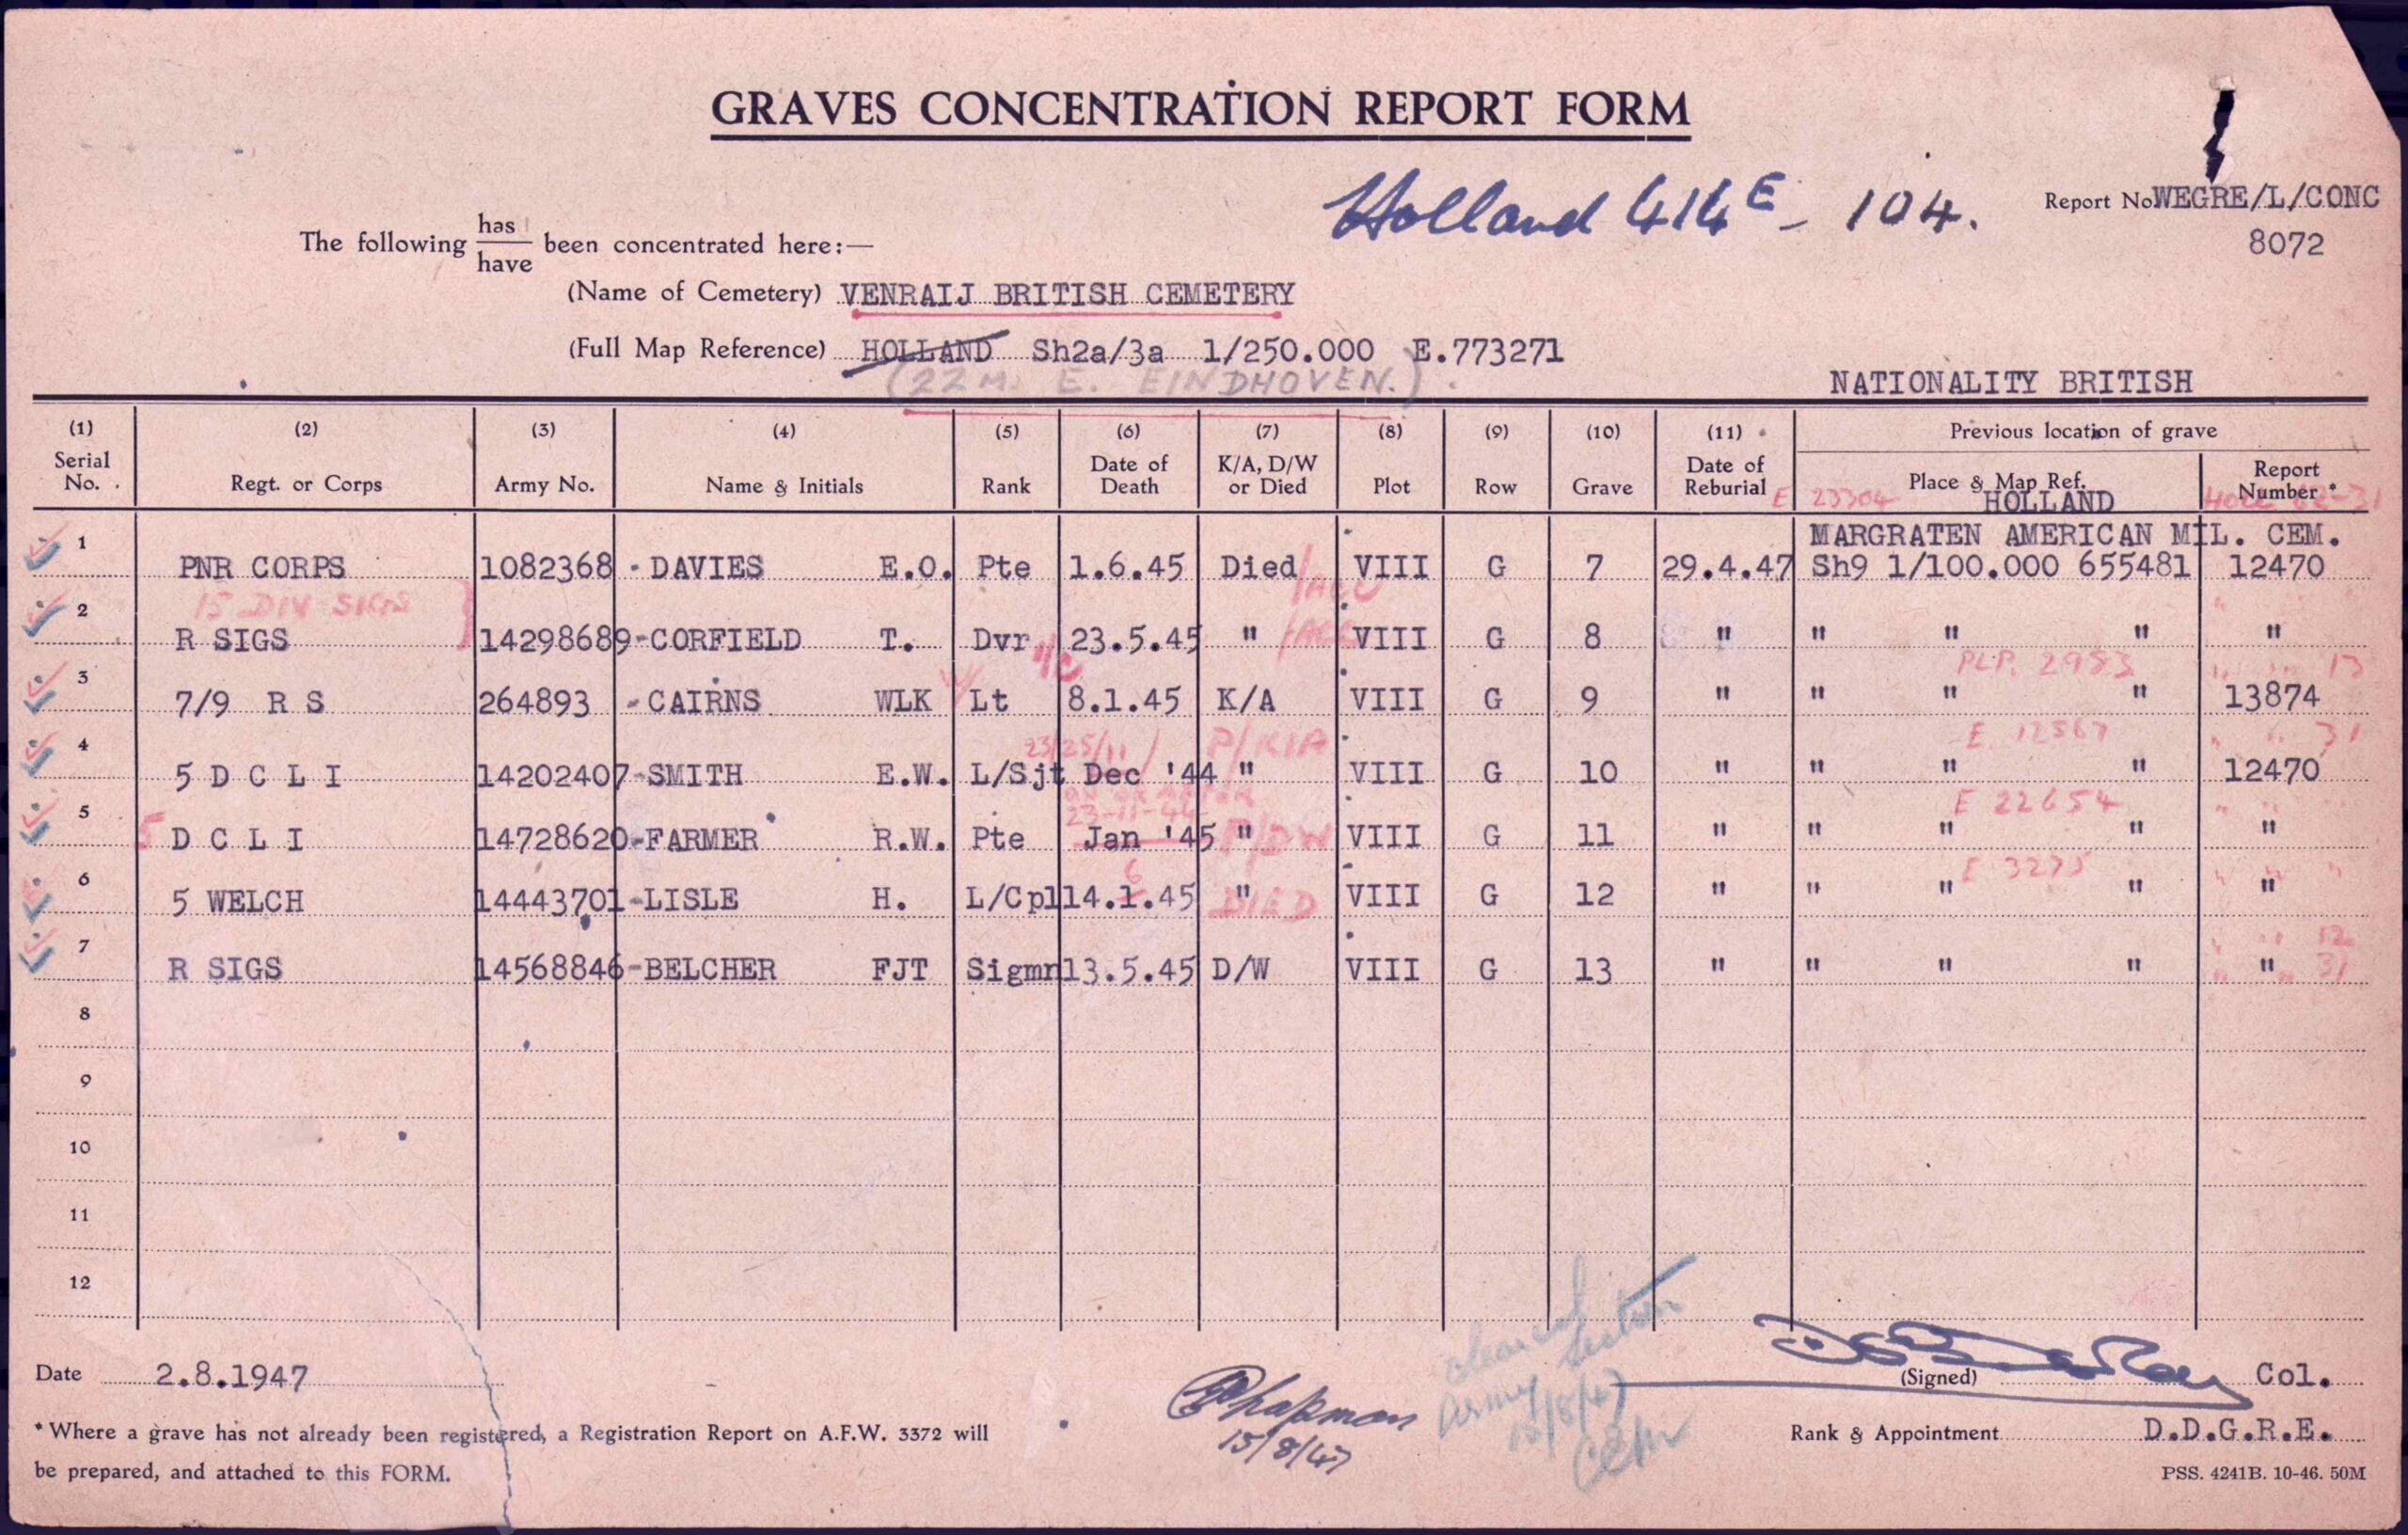 GRAVES CONCENTRATION REPORT FORM
Holland 414E - 104.
Report No WEGRE/L/CONC
8072
The following has/have been concentrated here:—
(Name of Cemetery) VENRAIJ BRITISH CEMETERY
(Full Map Reference) HOLLAND Sh2a/3a 1/250.000 E.773271
(22 M. E. EINDHOVEN.)
NATIONALITY BRITISH
(1) (2) (3) (4) (5) (6) (7) (8) (9) (10) (11) Previous location of grave
Serial No. Regt. or Corps Army No. Name & Initials Rank Date of Death K/A, D/W or Died Plot Row Grave Date of Reburial Place & Map Ref. Report Number *
E 23304 HOLLAND
MARGRATEN AMERICAN MIL. CEM.
1 PNR CORPS 1082368 - DAVIES E.O. Pte 1.6.45 Died /ACC VIII G 7 29.4.47 Sh9 1/100.000 655481 12470
15 DIV SIGS
2 R SIGS 14298689-CORFIELD T. Dvr 23.5.45 " /ACC VIII G 8 " " " " "
PLP. 2983 " " 13
3 7/9 R S 264893 -CAIRNS WLK Lt 8.1.45 K/A VIII G 9 " " " " 13874
23/25/11/ P/KIA E 12567 " " 31
4 5 D C L I 14202407-SMITH E.W. L/Sjt Dec '44 " VIII G 10 " " " " 12470
23-11-44 E 22654 " "
5 5 D C L I 14728620-FARMER R.W. Pte Jan '45 " P/DW VIII G 11 " " " " "
6 E 3275 " " "
6 5 WELCH 14443701-LISLE H. L/Cpl 14.1.45 " DIED VIII G 12 " " " " "
" " 12
7 R SIGS 14568846-BELCHER FJT Sigmn 13.5.45 D/W VIII G 13 " " " " " " " 31
8
9
10
11
12
Date 2.8.1947
Chapman
15/8/47
Section
Army
15/8/47
(Signed) Col.
* Where a grave has not already been registered, a Registration Report on A.F.W. 3372 will
be prepared, and attached to this FORM.
Rank & Appointment D.D.G.R.E.
PSS. 4241B. 10-46. 50M